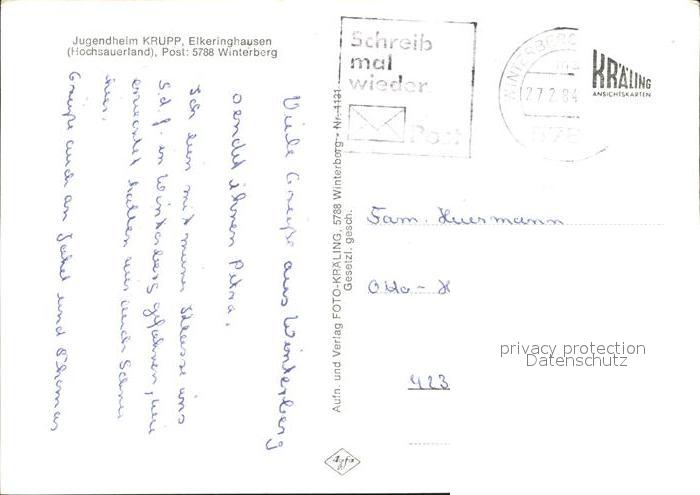 Jugendheim KRUPP, Elkeringhausen
(Hochsauerland), Post: 5788 Winterberg
Viele Grüße aus Winterberg
sendet Ihnen Petra.
Ich bin mit meiner Klasse ins
S.d.f. in Winterberg gefahren, wie
erwartet hatten wir auch Schnee
hier.
Grüße auch an Jahel und Thomas
Aufn. und Verlag FOTO-KRÄLING, 5788 Winterberg - Nr. 4131
Gesetzl. gesch.
Schreib
mal
wieder
Post
WINTERBERG
27.2.84
578
KRÄLING
ANSICHTSKARTEN
Fam. Huermann
Otto-H
423
privacy protection
Datenschutz
Agfa